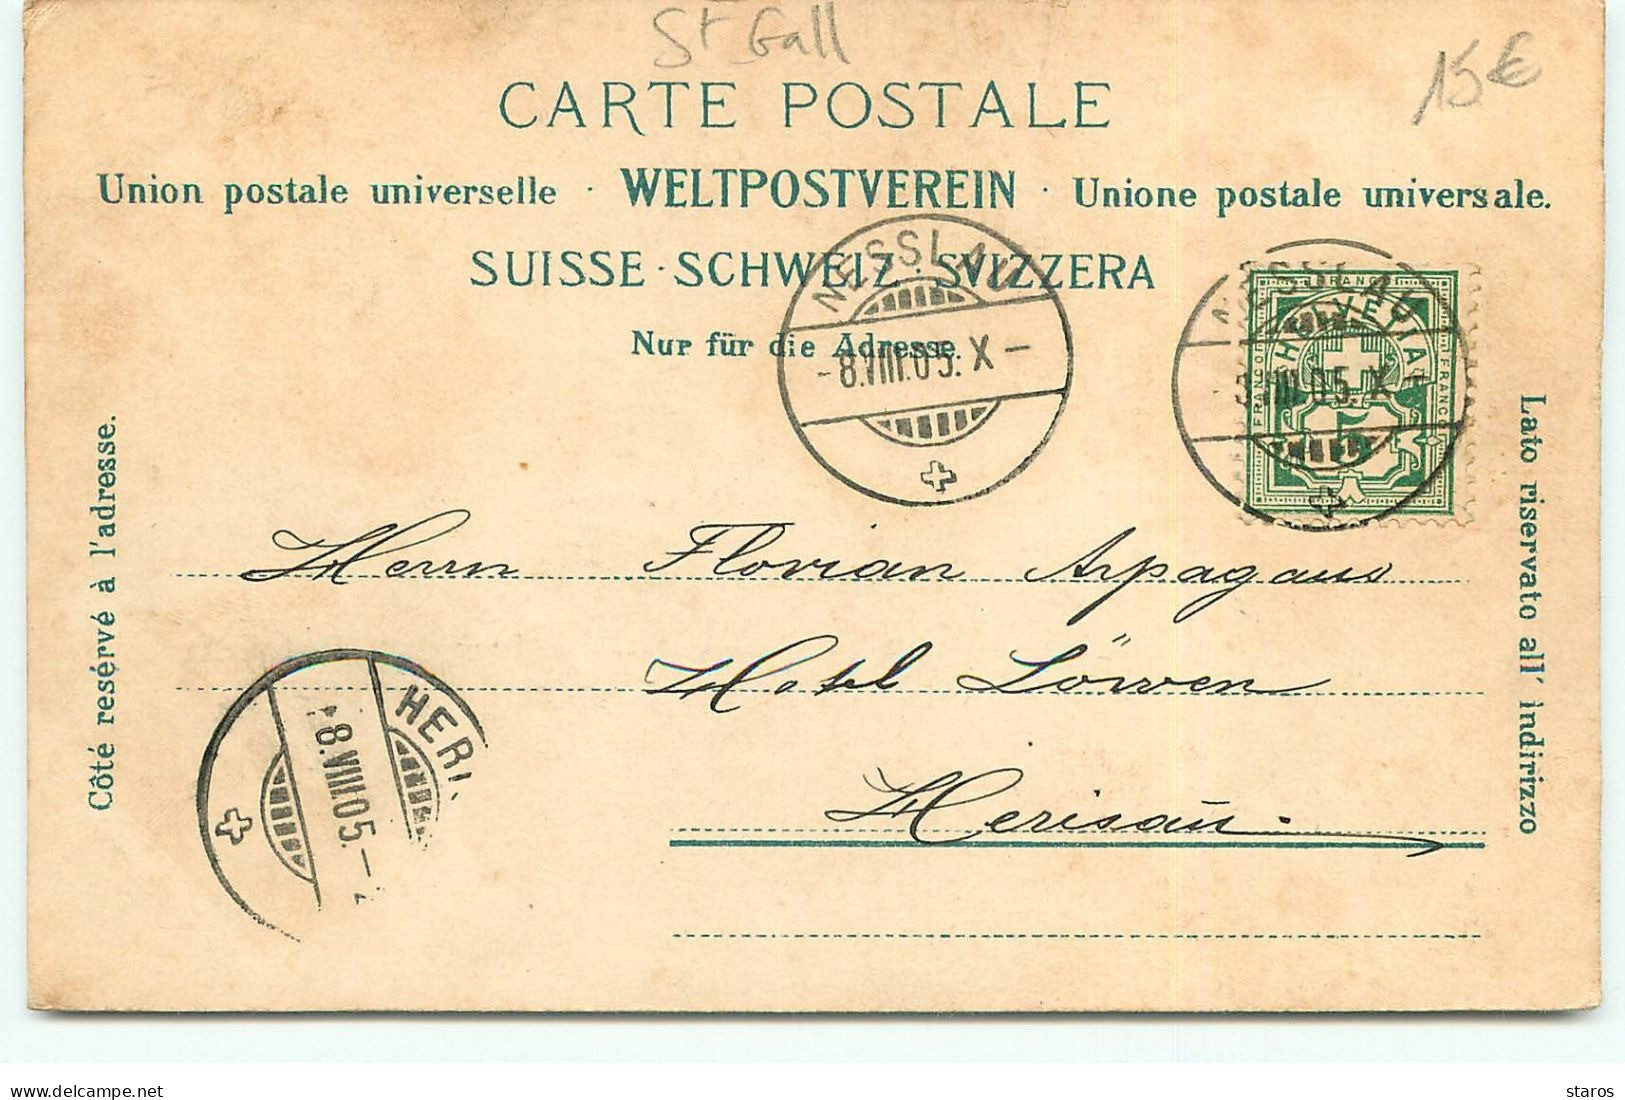 St Gall
15€
CARTE POSTALE
Union postale universelle · WELTPOSTVEREIN · Unione postale universale.
SUISSE · SCHWEIZ · SVIZZERA
Nur für die Adresse.
NESSLAU
-8.VIII.05.X-
NESSLAU
8.VIII.05.X-
FRANCO
HELVETIA
FRANCO
FRANCO
5
Côté resérvé à l'adresse.
Lato riservato all' indirizzo
Herrn Florian Arpagaus
Hotel Löwen
Herisau.
HERI
-8.VIII.05.-
delcampe.net
staros